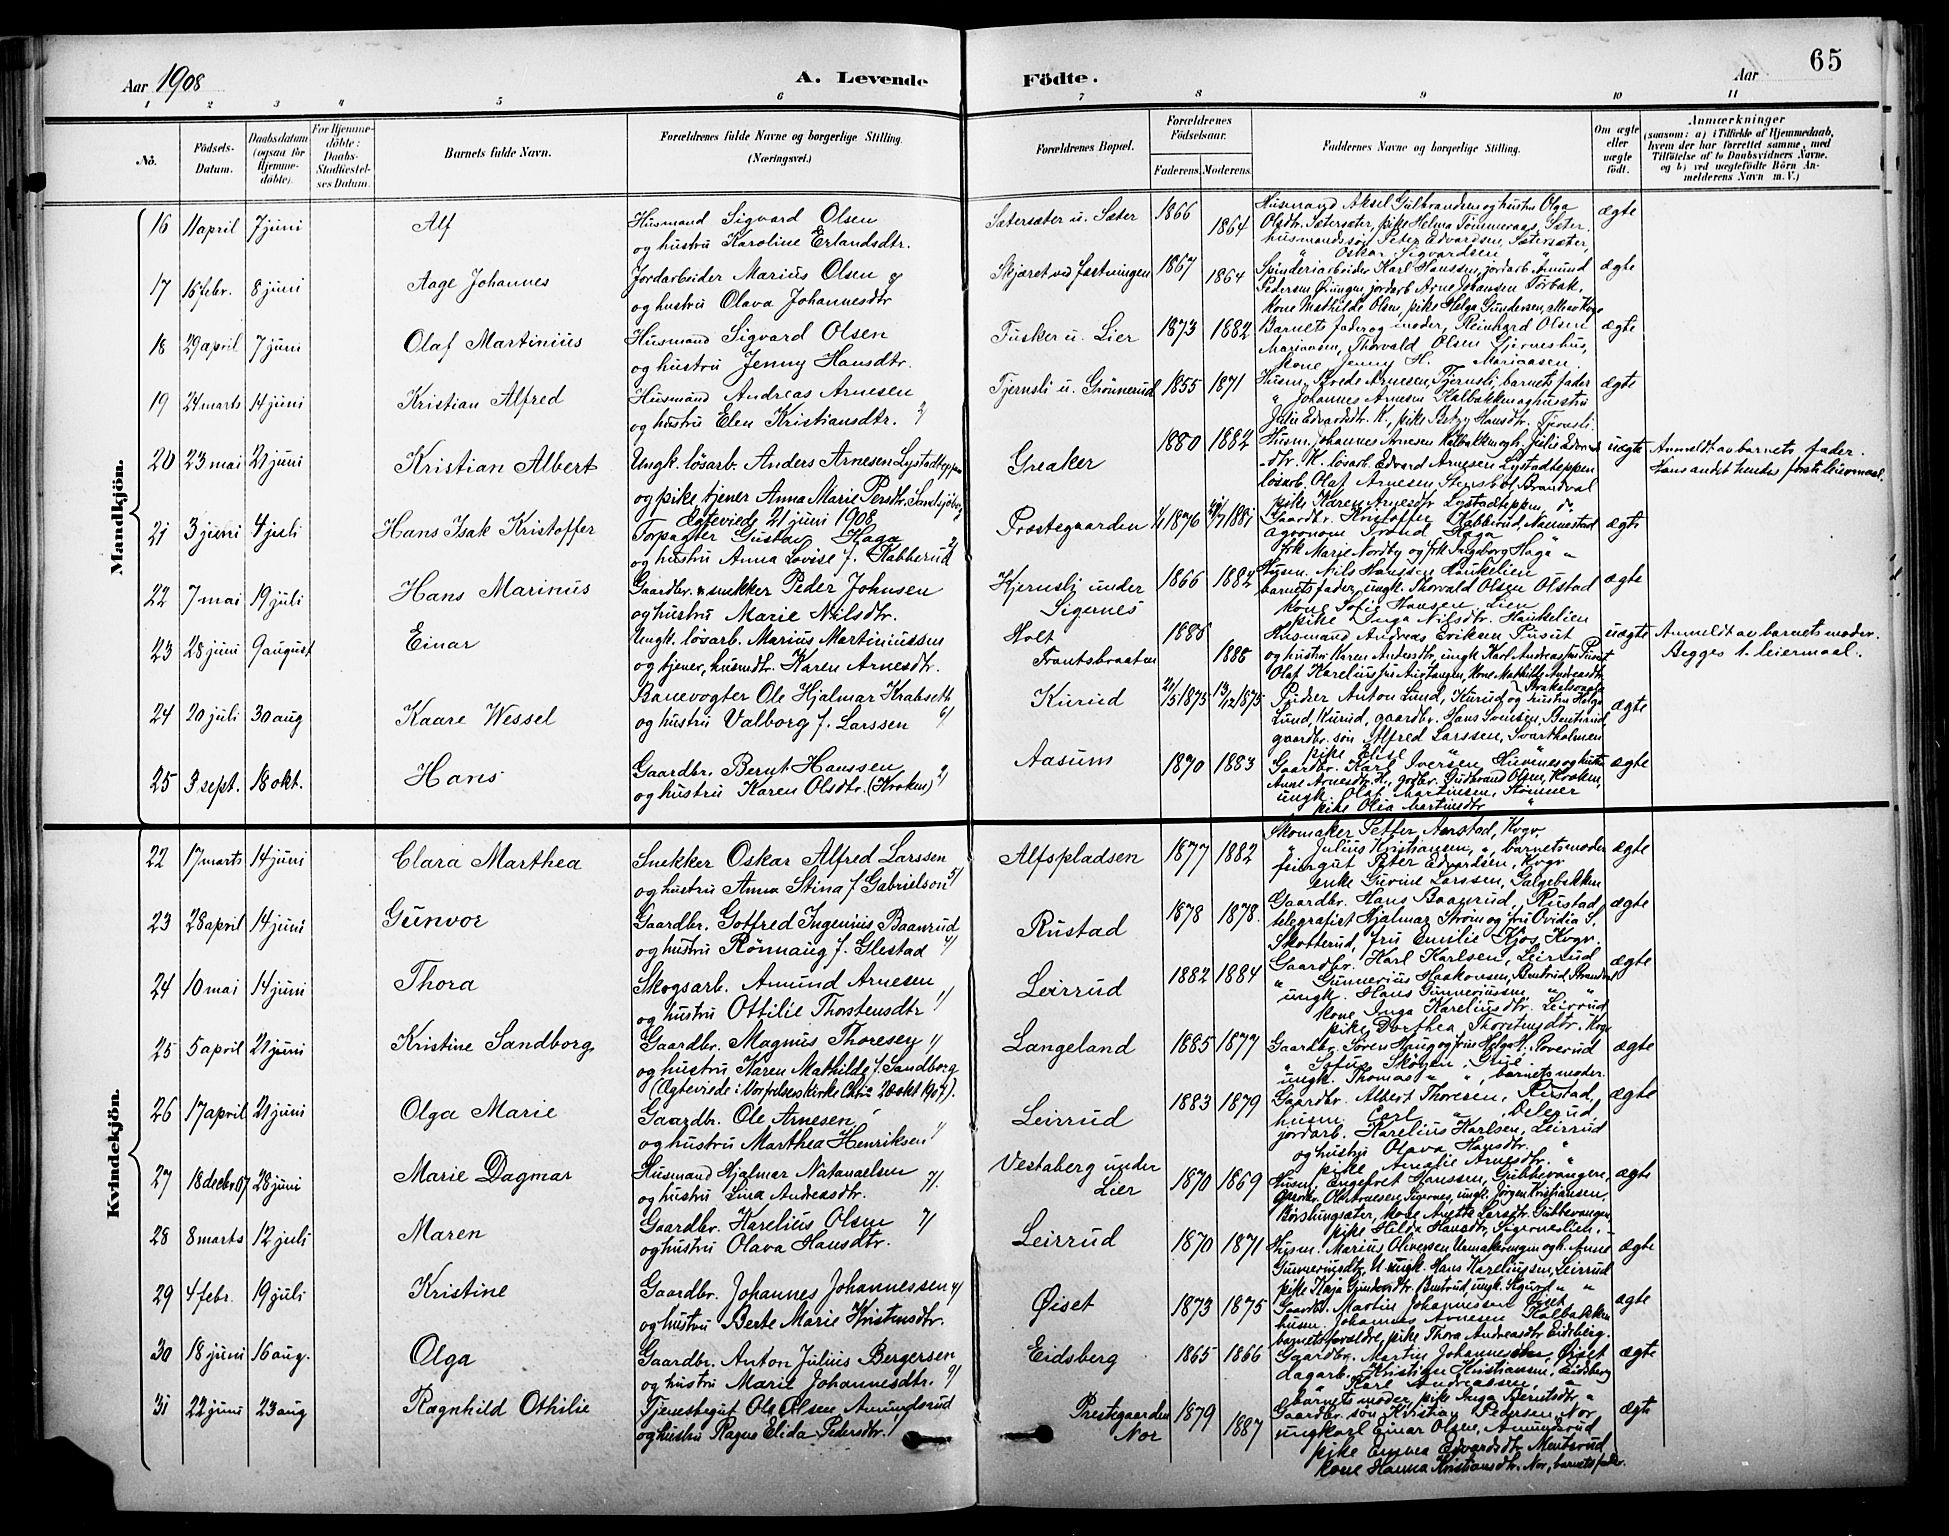 65
Aar 1908
A. Levende Födte.
Aar
1 2 3 4 5 6 7 8 9 10 11
No.
Födsels-Datum.
Daabsdatum (ogsaa for Hjemme-döbte).
For Hjemme-döbte: Daabs-Stadfæstel-ses Datum.
Barnets fulde Navn.
Forældrenes fulde Navne og borgerlige Stilling. (Næringsvei.)
Forældrenes Bopæl.
Forældrenes Födselsaar.
Faderens. Moderens.
Faddernes Navne og borgerlige Stilling.
Om ægte eller uægte födt.
Anmærkninger
(saasom: a) i Tilfælde af Hjemmedaab,
hvem der har forrettet samme, med
Tilföielse af to Daabsvidners Navne.
og b) ved uægtefödte Börn An-
melderens Navn m. V.)
Mandkjön.
16 11 april 7 juni Alf
Husmand Sigvard Olsen
og hustru Karoline Erlandsdtr.
Sætersæter u. Sæter 1866 1864
Husmand Aksel Gulbrandsen og hustru Olga
Olsdtr. Sætersæter, pike Helma Tömmeraas, Sæter.
husmandssön Peter Edvardsen, Sætersæter,
" Oskar Sigvardsen "
ægte
17 16 febr. 8 juni Aage Johannes
Jordarbeider Marius Olsen
og hustru Olava Johannesdtr
Skjæret ved fæstningen 1867 1864
Spinderiarbeider Karl Hanssen, jordarb. Amund
Pedersen Öiungen, jordarb. Arne Johansen Torbak,
kone Mathilde Olsen, pike Helga Gundersen,
ægte
18 29 april 7 juni Olaf Martinius
Husmand Sigvard Olsen
og hustru Jenny Hansdtr.
Fusker u. Lier 1873 1882
Barnets fader og moder, Reinhard Olsen
Mariaasen, Thorvald Olsen Gjerneshus,
kone Jenny H. Mariaasen.
ægte
19 24 marts 14 juni Kristian Alfred
Husmand Andreas Arnesen
og hustru Elen Kristiansdtr. 2/
Tjernsli u. Grönnerud 1855 1871
Husm. Brede Arnesen, Tjernsli, barnets fader
" Johannes Arnesen Kalbakken og hustru
Julie Edvardsdtr. K., pike Betzy Hansdtr. Tjernsli.
ægte
20 23 mai 21 juni Kristian Albert
Ungk. lösarb. Anders Arnesen Lystadteppen
og pike, tjener Anna Marie Persdtr.
Ægteviede 21 juni 1908
Greaker 1880 1882
Husm. Johannes Arnesen Kalbakken og h. Julie Edvards-
dtr. K. lösarb. Edvard Arnesen Lystadteppen
lösarb. Olaf Arnesen Brandval
pike Karen Arnesdtr Lystadteppen
uægte
Anmeldt av barnets fader.
Hans andet hendes förste leiermaal.
21 3 juni 4 juli Hans Isak Kristoffer
Forpagter Gustav Haga
og hustru Anna Lovise f. Kabberud 2/
Prestegaarden 1/1 1876 1881
Gaardbr. Kristoffer Kabberud, Nannestad
agronom Trond Haga
frk Marie Nordby og frk Ingeborg Haga "
ægte
22 7 mai 19 juli Hans Marinus
Gaardbr. & snekker Peder Johnsen
og hustru Marie Nilsdtr.
Kjernsli under Sigernes 1866 1882
Husm. Nils Hanssen Haukelien
barnets fader, ungk. Thorvald Olsen Olstad
kone Sofie Hansen Lien
pike Inga Nilsdtr. Haukelien
ægte
23 28 juni 9 august Einar
Ungk. lösarb. Marius Martiniussen
og tjener, husmdtr. Karen Arnesdtr.
Holt
Frantsbraaten 1886 1886
Husmand Andreas Eriksen Pusut
og hustru Karen Andersdtr, ungk. Karl Andreassen Pusut
uægte
Anmeldt av barnets moder.
Begges 1. leiermaal.
24 20 juli 30 aug Kaare Wessel
Banevogter Ole Hjalmar Krabseth
og hustru Valborg f. Larssen 6/
Kurud 21/5 1875 13/12 1875
Pudser Anton Lund, Kurud og hustru Helga
Lund, Kurud, gaardbr. Hans Svensen, Bentsrud
gaardbr. sön Alfred Larssen, Svartholmen
pike Else "
ægte
25 3 sept. 18 okt. Hans
Gaardbr. Bernt Hanssen
og hustru Karen Olsdtr. (Kroken) 2/
Aasum 1870 1883
Gaardbr. Karl Iversen, og hustru
Anne Arnesdtr. H., grdbr. Gudbrand Olsen, Kroken,
ungk. Olaf Martinsen, Stömner
pike Olia Martinsdtr "
ægte
Kvindekjön.
22 17 marts 14 juni Clara Marthea
Snekker Oskar Alfred Larssen
og hustru Anna Stina f. Gabrielson 5/
Alfspladsen 1877 1882
Skomaker Petter Aarstad, Kvgv.
" Julius Kristiansen, ", barnets moder
feiergut Peter Edvardsen, Kvgv
enke Gurine Larssen, Galgebakken
ægte
23 28 april 14 juni Gunvor
Gaardbr. Gotfred Ingenius Baanrud
og hustru Rönnaug f. Glestad 4/
Rustad 1878 1878.
Gaardbr. Hans Baanrud, Rustad,
telegrafist Hjalmar Ström og fru Ovidia S.
Skotterud, fru Emilie Kjos, Kvgv.
ægte
24 10 mai 14 juni Thora
Skogsarb. Amund Arnesen
og hustru Ottilie Thorstensdtr 1/
Leirrud 1882 1884
Gaardbr. Karl Karlsen, Leirrud
" Gunnerius Haakonsen, Bentsrud, Brandval
ungk. Hans Gunneriussen, " "
kone Inga Kareliusdtr. Leirrud
pike Dorthea Thorstensdtr. Kvgv.
ægte
25 5 april 21 juni Kristine Sandborg
Gaardbr. Magnus Thoresen 1/
og hustru Karen Mathilde f. Sandborg
(Ægteviede i Vorfrelserskirke Chria 20 okt 1907).
Langeland 1885 1877
Gaardbr. Sören Haug og frue Helga H. Roverud
" Sofus Skögen, Grue
ungk. Thomas " ", barnets moder.
ægte
26 17 april 21 juni Olga Marie
Gaardbr. Ole Arnesen
og hustru Marthea Henriksen 1/
Leirrud 1883 1879
Gaardbr. Albert Thoresen, Rustad,
husm. Carl ",
jordarb. Karelius Karlsen, Leirrud
og hustru Olava Hansdtr. "
pike Amalie Arnesdtr. "
ægte
27 18 decbr. 07 28 juni Marie Dagmar
Husmand Hjalmar Natanaelsen
og hustru Lina Andreasdtr. 7/.
Vestaberg under Lier 1870 1869
Husm. Engefret Hanssen, Gubbevangen,
Sigernes, ungk. Jörgen Kristiansen,
Börslungsæter, kone Anette Larsdtr. Gubbevangen
pike Hilda Hansdtr, Sigerneslien.
ægte
28 8 marts 12 juli Maren
Gaardbr. Karelius Olsen 7/
og hustru Olava Hansdtr.
Leirrud 1870 1871
Husm. Marius Oliversen Urmakerengen og h. Anne
Gunneriusdtr, U. ungk. Hans Kareliussen, Leirrud
pike Kaja Gundersdtr. Bentsrud, ungk. Sigurd " "
ægte
29 4 febr. 19 juli Kristine
Gaardbr. Johannes Johannessen 4/
og hustru Berte Marie Kristensdtr.
Øiset 1873 1875
Gaardbr. Martin Johannessen Öiset
husm. Johannes Arnesen Kalbakken
barnets forældre, pike Thora Andreasdtr Eidsberg.
ægte
30 18 juni 16 aug. Olga
Gaardbr. Anton Julius Bergersen
og hustru Marie Johannesdtr. 9/
Eidsberg 1865 1866
Gaardbr. Martin Johannessen, Øiset
dagarb. Kristian Kristiansen, Eidsberg
" Karl Andreassen, "
barnets moder, pike Inga Berntsdtr "
ægte
31 22 juni 23 aug Ragnhild Othilie
Tjenestegut Ole Olsen Amundsrud
og hustru Ragna Elida Pedersdtr. 1/
Prestegaarden Nor 1879 1887
Gaardbr. sön Kristian Pedersen Nor
ungkarl Einar Olsen, Amundsrud
pike Emma Edvardsdtr. Mentsrud,
kone Hanna Kristiansdtr. Nor, barnets fader.
ægte